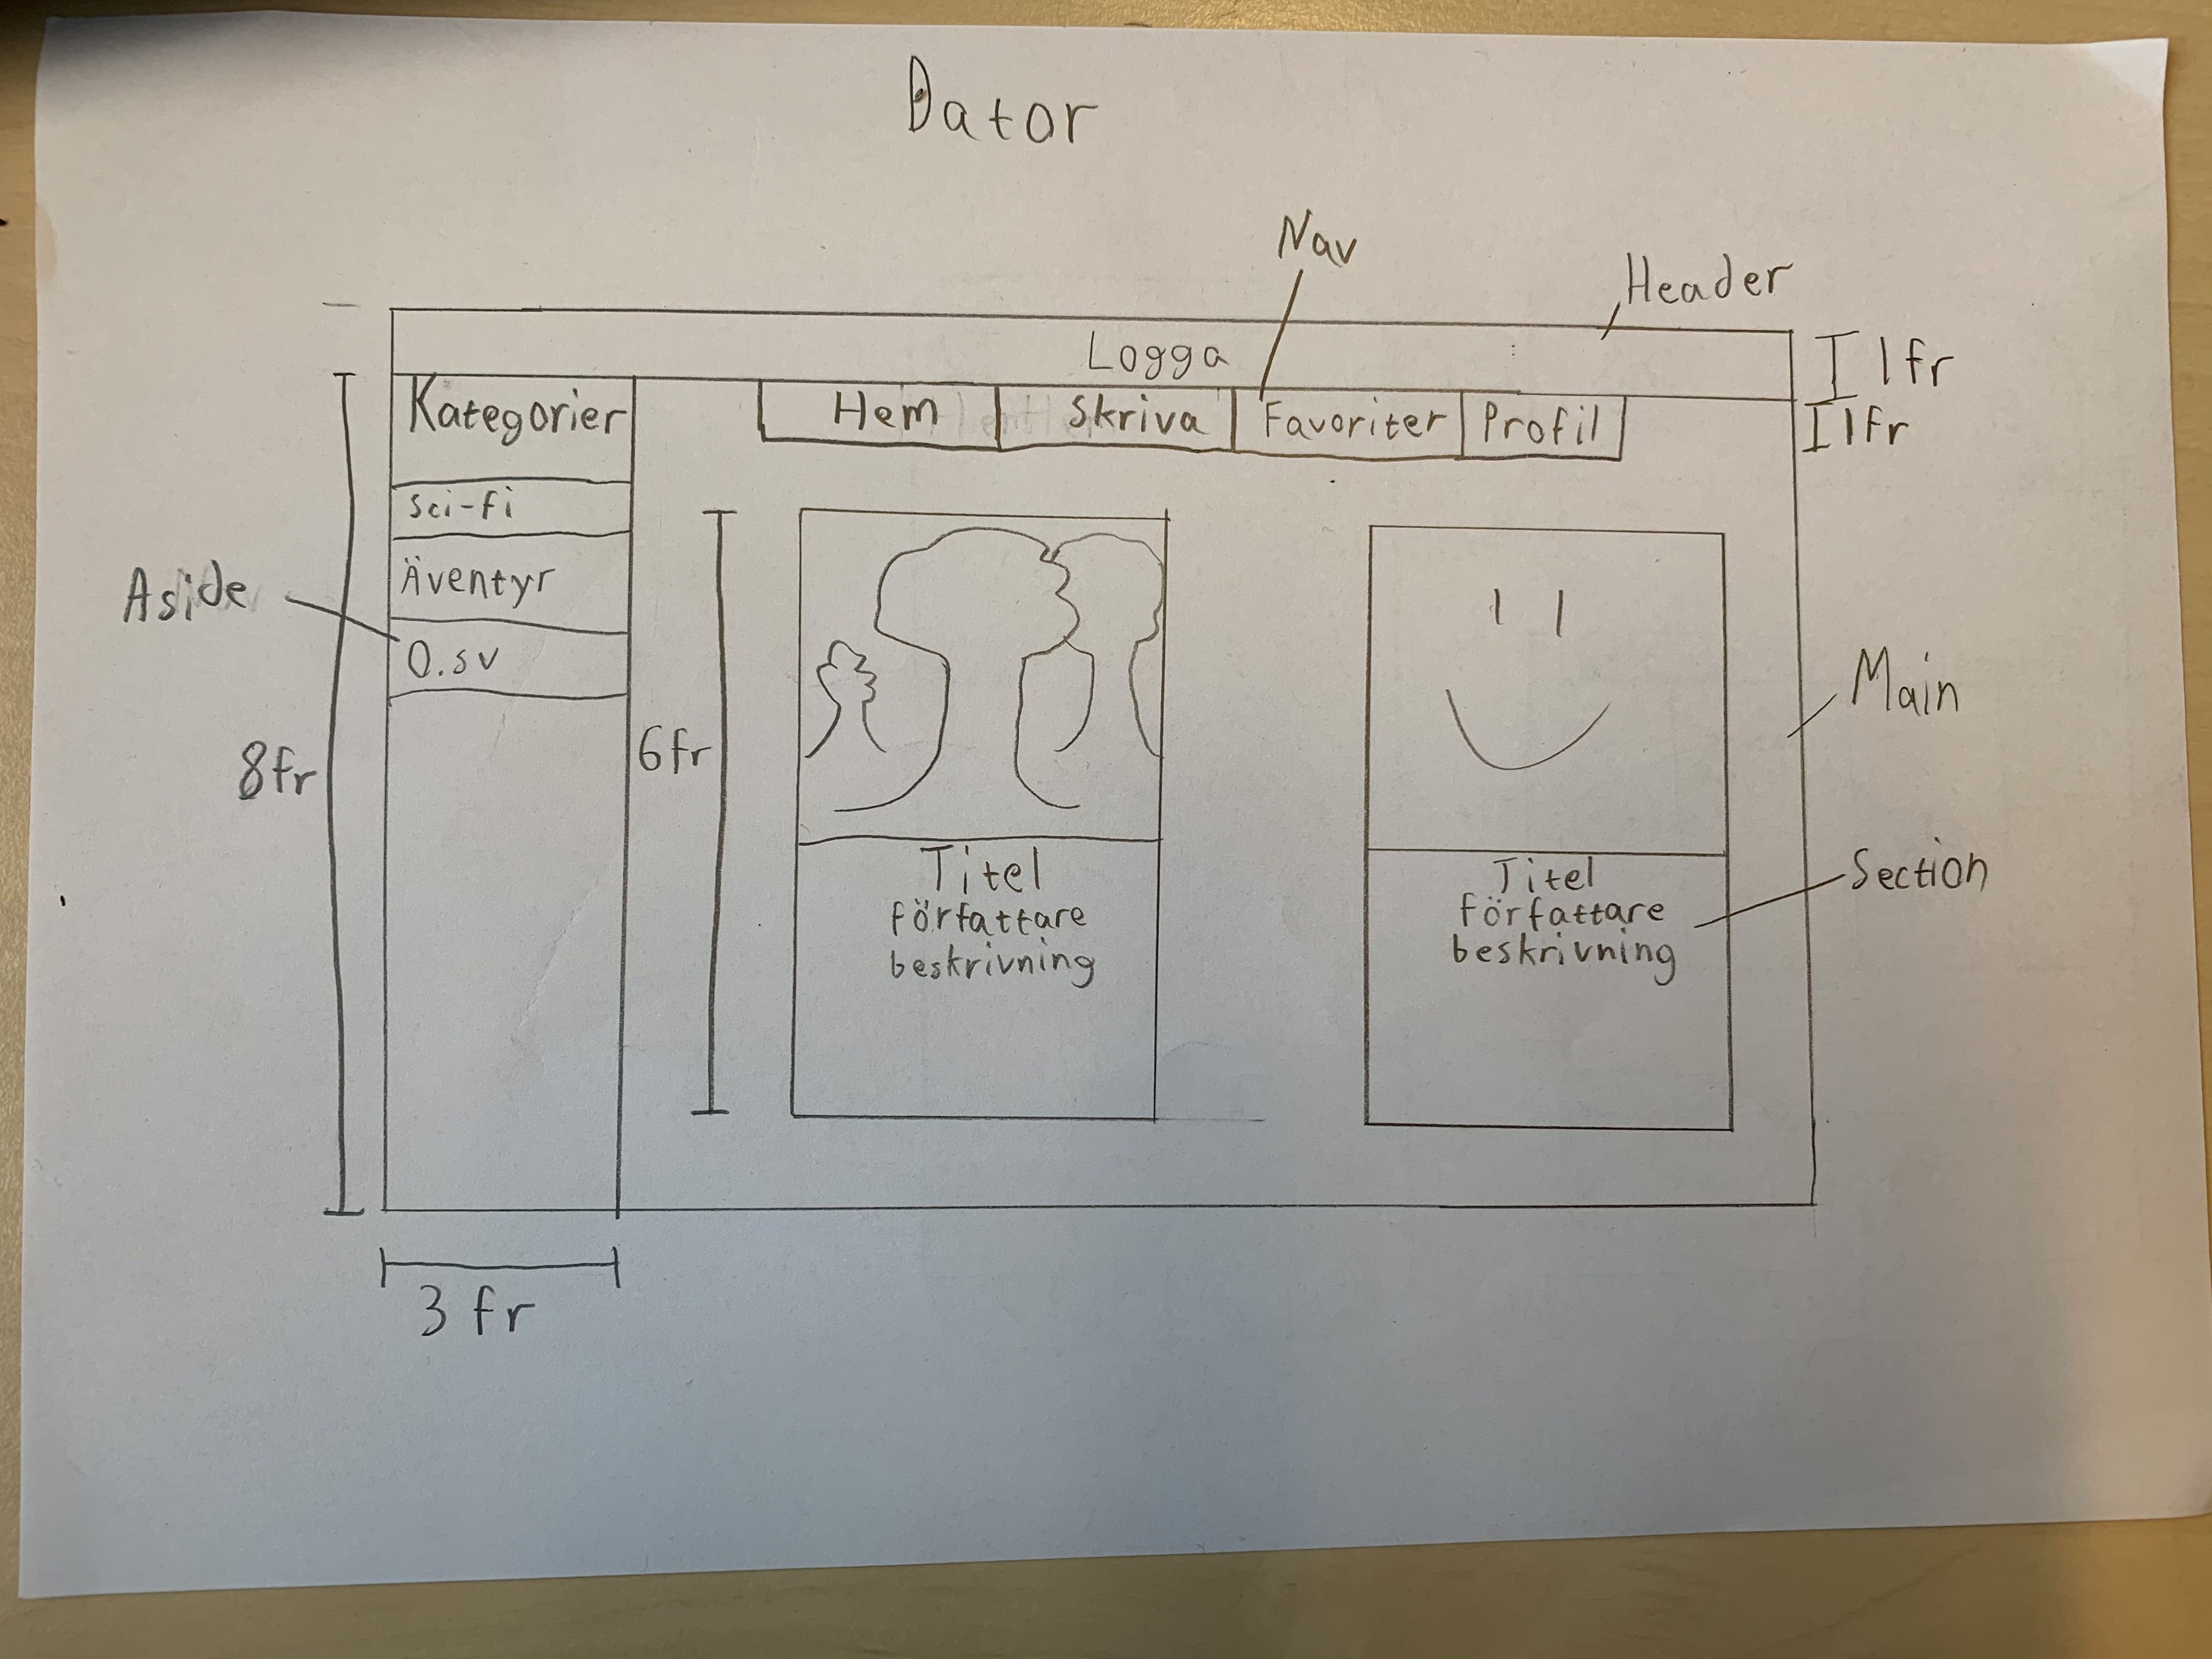 Dator
Nav
Header
Logga
1fr
1fr
Hem
skriva
Favoriter
Profil
Kategorier
Sci-fi
Äventyr
O.sv
Aside
8fr
6fr
3fr
Titel
författare
beskrivning
Titel
författare
beskrivning
Main
Section